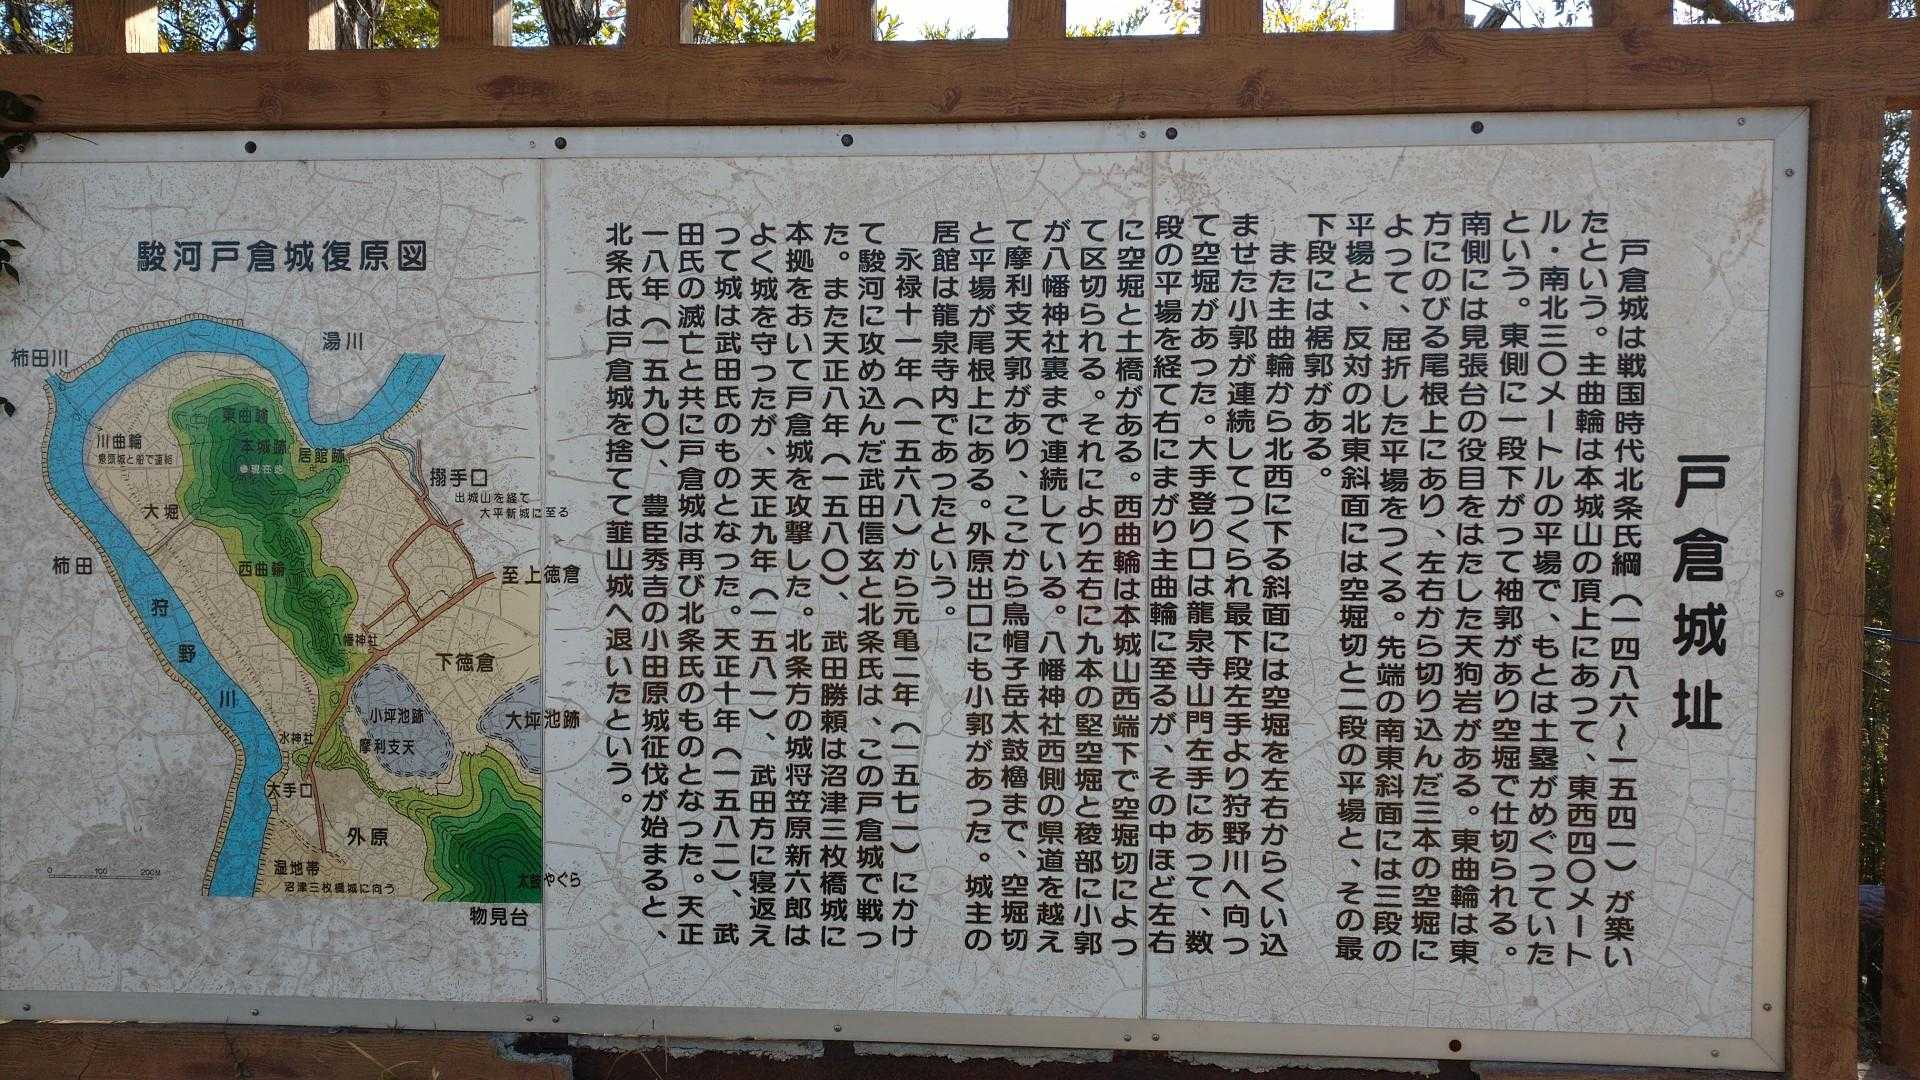 戸倉城址
戸倉城は戦国時代北条氏綱（一四八六～一五四一）が築い
たという。主曲輪は本城山の頂上にあって、東西四〇メート
ル・南北三〇メートルの平場で、もとは土塁がめぐっていた
という。東側に一段下がって袖郭があり空堀で仕切られる。
南側には見張台の役目をはたした天狗岩がある。東曲輪は東
方にのびる尾根上にあり、左右から切り込んだ三本の空堀に
よって、屈折した平場をつくる。先端の南東斜面には三段の
平場と、反対の北東斜面には空堀切と二段の平場と、その最
下段には裾郭がある。
また主曲輪から北西に下る斜面には空堀を左右からくい込
ませた小郭が連続してつくられ最下段左手より狩野川へ向っ
て空堀があった。大手登り口は龍泉寺山門左手にあって、数
段の平場を経て右にまがり主曲輪に至るが、その中ほど左右
に空堀と土橋がある。西曲輪は本城山西端下で空堀切によっ
て区切られる。それにより左右に九本の竪空堀と稜部に小郭
が八幡神社裏まで連続している。八幡神社西側の県道を越え
て摩利支天郭があり、ここから烏帽子岳太鼓櫓まで、空堀切
と平場が尾根上にある。外原出口にも小郭があった。城主の
居館は龍泉寺内であったという。
永禄十一年（一五六八）から元亀二年（一五七一）にかけ
て駿河に攻め込んだ武田信玄と北条氏は、この戸倉城で戦っ
た。また天正八年（一五八〇）、武田勝頼は沼津三枚橋城に
本拠をおいて戸倉城を攻撃した。北条方の城将笠原新六郎は
よく城を守ったが、天正九年（一五八一）、武田方に寝返え
って城は武田氏のものとなった。天正十年（一五八二）、武
田氏の滅亡と共に戸倉城は再び北条氏のものとなった。天正
一八年（一五九〇）、豊臣秀吉の小田原城征伐が始まると、
北条氏は戸倉城を捨てて韮山城へ退いたという。
駿河戸倉城復原図
湯川
柿田川
東曲輪
川曲輪
泉頭城と船で連絡
本城跡
居館跡
●現在地
搦手口
出城山を経て
大平新城に至る
大堀
柿田
西曲輪
至上徳倉
狩野川
八幡神社
下徳倉
小坪池跡
大坪池跡
水神社
摩利支天
大手口
外原
湿地帯
沼津三枚橋城に向う
太鼓やぐら
物見台
0 100 200M